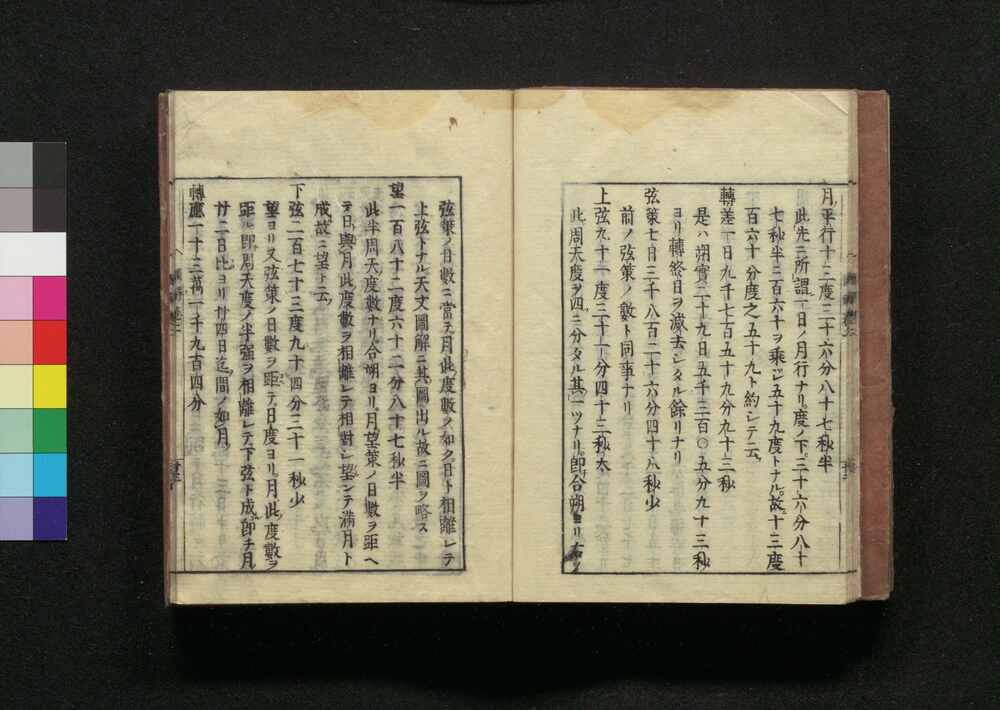 月平行十三度三十六分八十七秒半
此先ニ所謂一日ノ月行ナリ度ノ下三十六分八十
七秒半ニ百六十ヲ乘シ五十九度トナル故十三度
百六十分度之五十九ト約シテ云
轉差一日九千七百五十九分九十三秒
是ハ朔實二十九日五千三百〇五分九十三秒
ヨリ轉終日ヲ減去シタル餘リナリ
弦策七日三千八百二十六分四十八秒少
前ノ弦策ノ數ト同事ナリ
上弦九十一度三十一分四十三秒太
此周天度ヲ四ニ分タル其一ツナリ即合朔ヨリ右ノ
弦策ノ日數ニ當テ月此度數ノ如ク日ト相離レテ
上弦トナル天文圖解ニ其圖出ル故ニ圖ヲ略ス
望一百八十二度六十二分八十七秒半
此半周天度數ナリ合朔ヨリ月望策ノ日數ヲ距ヘ
テ日與月此度數ヲ相離レテ相對シ望ンテ滿月ト
成故ニ望ト云
下弦二百七十三度九十四分三十一秒少
望ヨリ又弦策ノ日數ヲ距テ日度ヨリ月此度數ヲ
距ル即周天度ノ半強ヲ相離レテ下弦ト成即チ月
廿二日比ヨリ廿四日迄間ノ如月
轉應一十三萬一千九百四分